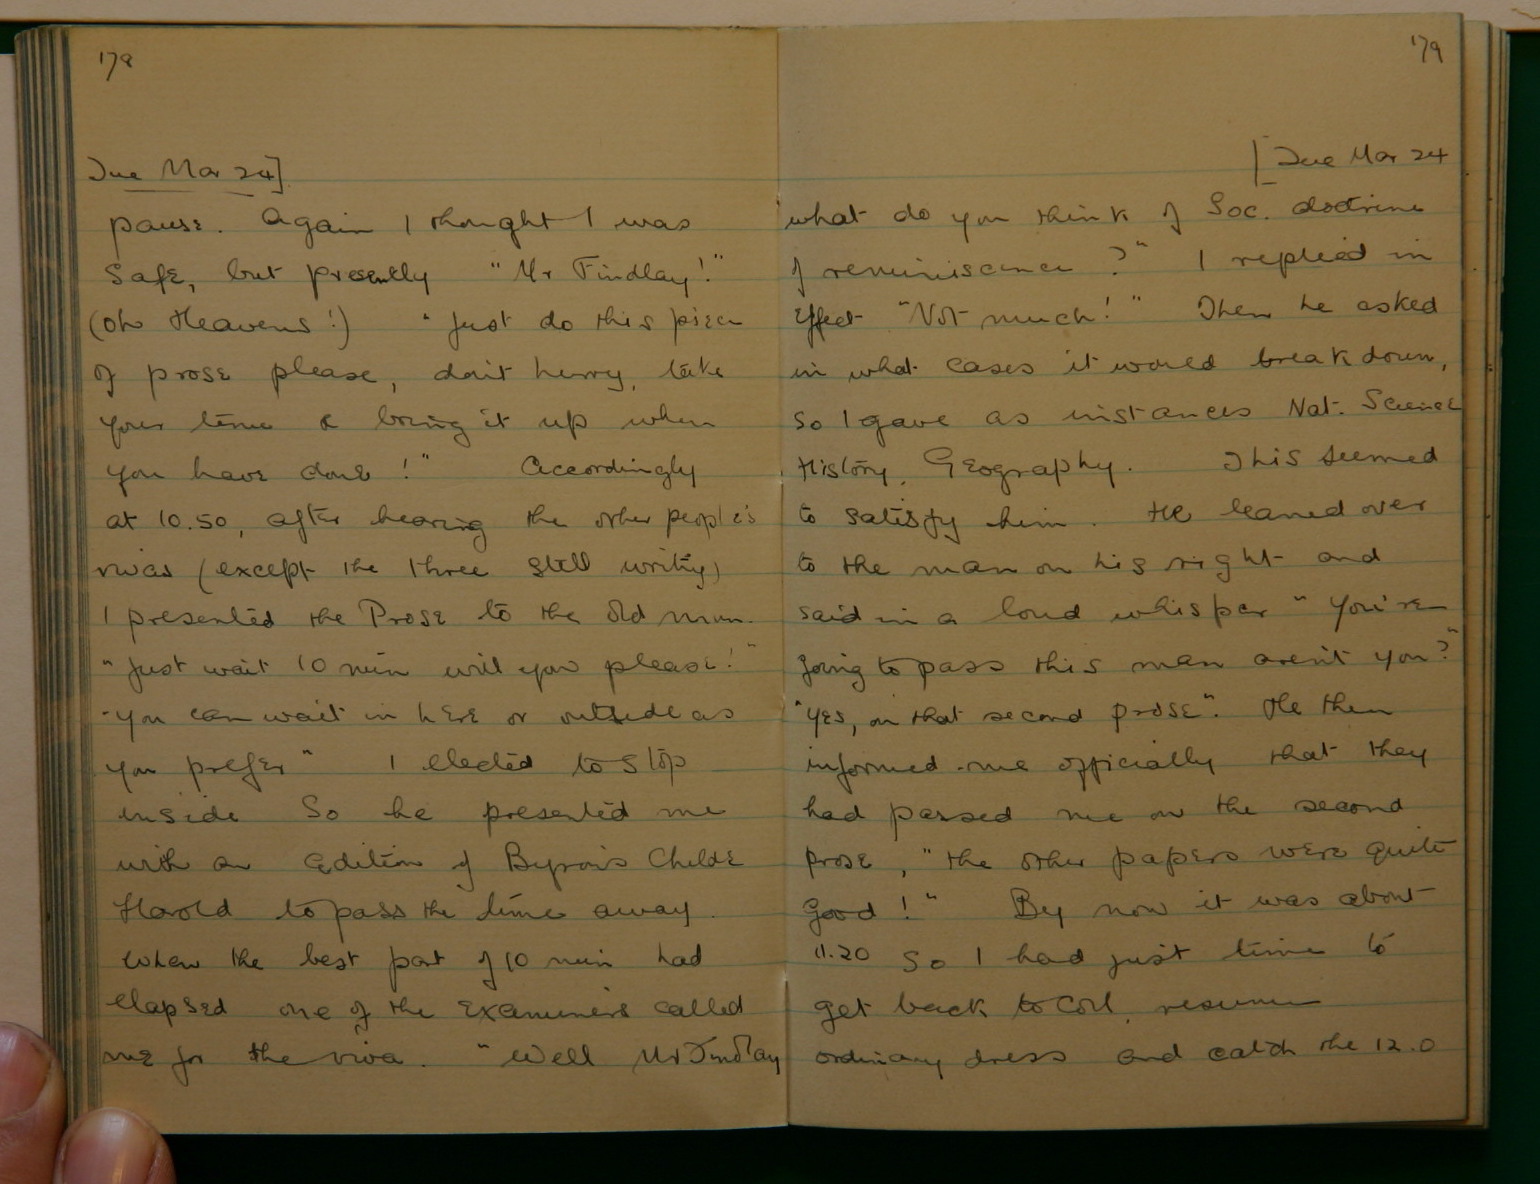 178
Tue Mar 24]
pause. Again I thought I was
safe, but presently "Mr Findlay!"
(Oh Heavens!) "Just do this piece
of prose please, don't hurry, take
your time & bring it up when
you have done!" Accordingly
at 10.50, after hearing the other people's
vivas (except the three still writing)
I presented the Prose to the old man.
"Just wait 10 min will you please!"
"You can wait in here or outside as
you prefer" I elected to stop
inside So he presented me
with an edition of Byron's Childe
Harold to pass the time away.
When the best part of 10 min had
elapsed one of the examiners called
me for the viva. "Well Mr Findlay
179
[Tue Mar 24
what do you think of Soc. doctrine
of reminiscence?" I replied in
effect "Not much!" Then he asked
in what cases it would break down,
so I gave as instances Nat. Science
History, Geography. This seemed
to satisfy him. He leaned over
to the man on his right and
said in a loud whisper "You're
going to pass this man aren't you?"
"Yes, on that second prose". He then
informed me officially that they
had passed me on the second
prose, "the other papers were quite
good!" By now it was about
11.20 so I had just time to
get back to Coll, resume
ordinary dress and catch the 12.0